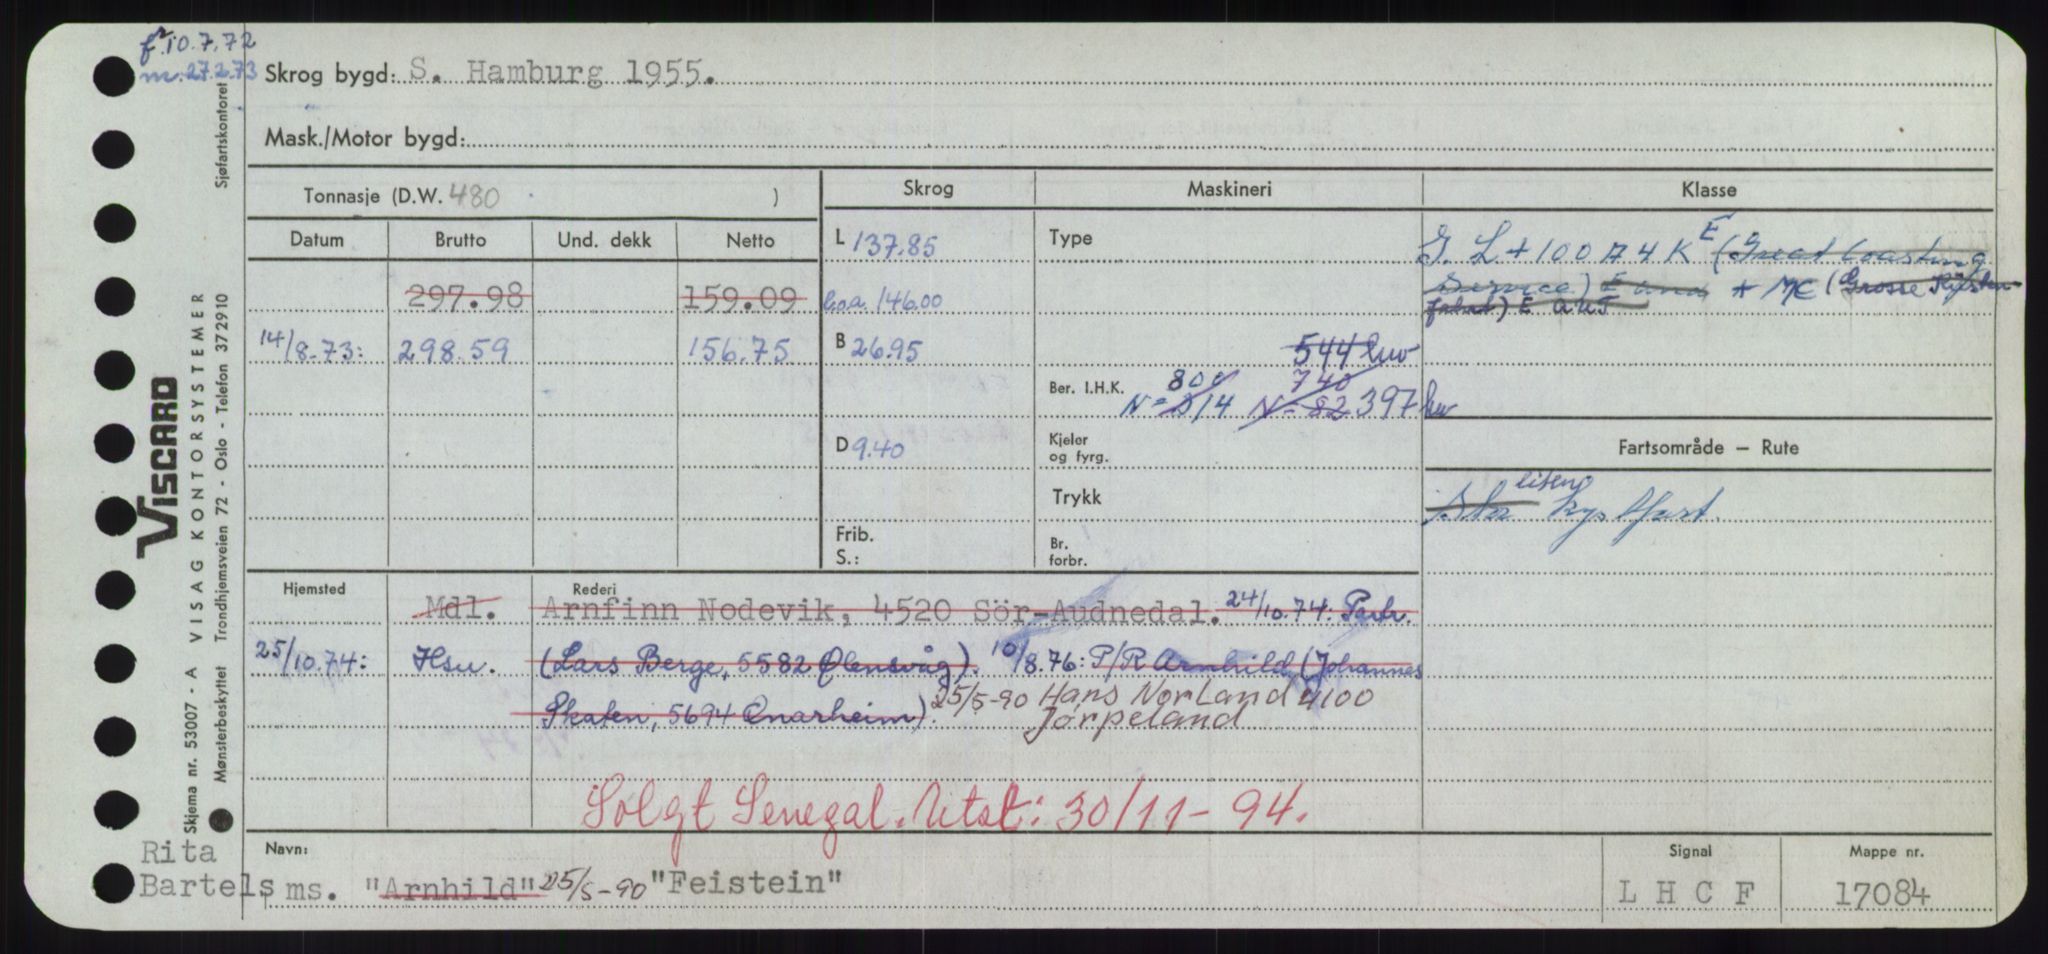 f. 10.7.72
m. 27.2.73
Skrog bygd: S. Hamburg 1955.
Mask./Motor bygd:
Tonnasje (D.W. 480 )
Skrog
Maskineri
Klasse
Datum
Brutto
Und. dekk
Netto
L 137.85
Type
G. L + 100 A 4 K E (Great Coasting
Service) E and + MC (Grosse Küsten-
fahrt) E AUT
297.98
159.09
l.o.a. 146.00
14/8-73: 298.59
156.75
B 26.95
544 kw
Ber. I.H.K.
800
N= 314
740
N= 82
397 kw
D 9.40
Kjeler
og fyrg.
Fartsområde — Rute
Trykk
Stor liten kystfart.
Frib.
S.:
Br.
forbr.
Hjemsted
Rederi
Mdl.
Arnfinn Nodevik, 4520 Sör-Audnedal. 24/10.74: Partr.
25/10.74: Hsu.
(Lars Berge, 5582 Ølensvåg). 10/8.76: P/R Arnhild (Johannes
Skaten, 5694 Onarheim). 25/5-90 Hans Norland 4100
Jørpeland
Solgt Senegal. Utst: 30/11-94.
Rita
Bartels
Navn:
ms. "Arnhild" 25/5-90 "Feistein"
Signal
L H C F
Mappe nr.
17084
Viscard
VISAG KONTORSYSTEMER
Skjema nr. 53007 - A
Mønsterbeskyttet
Trondhjemsveien 72 - Oslo - Telefon 372910
Sjøfartskontoret